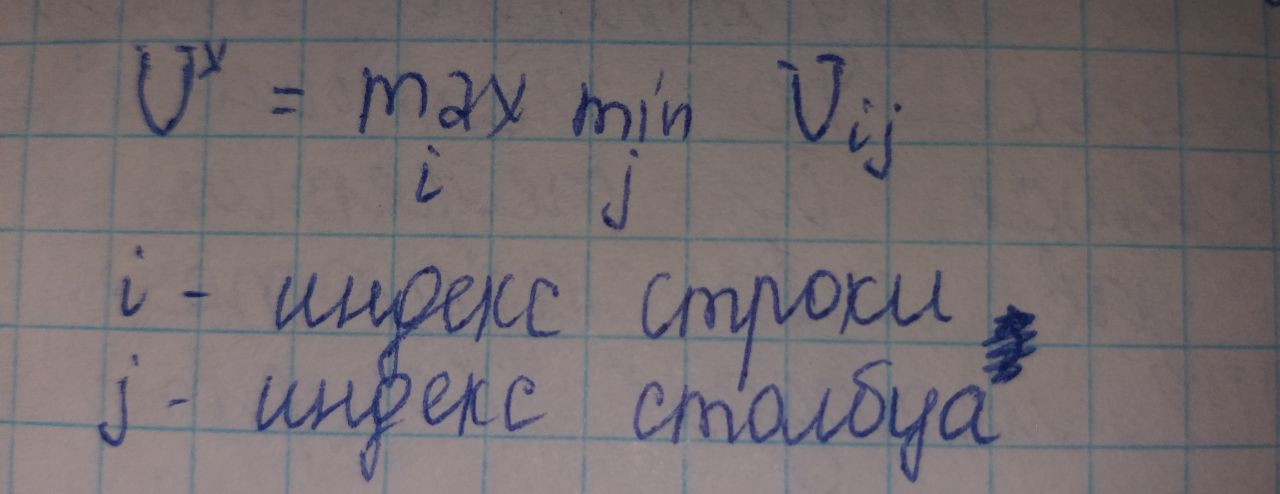 U* = max min U_ij
i j
i - индекс строки
j - индекс столбца